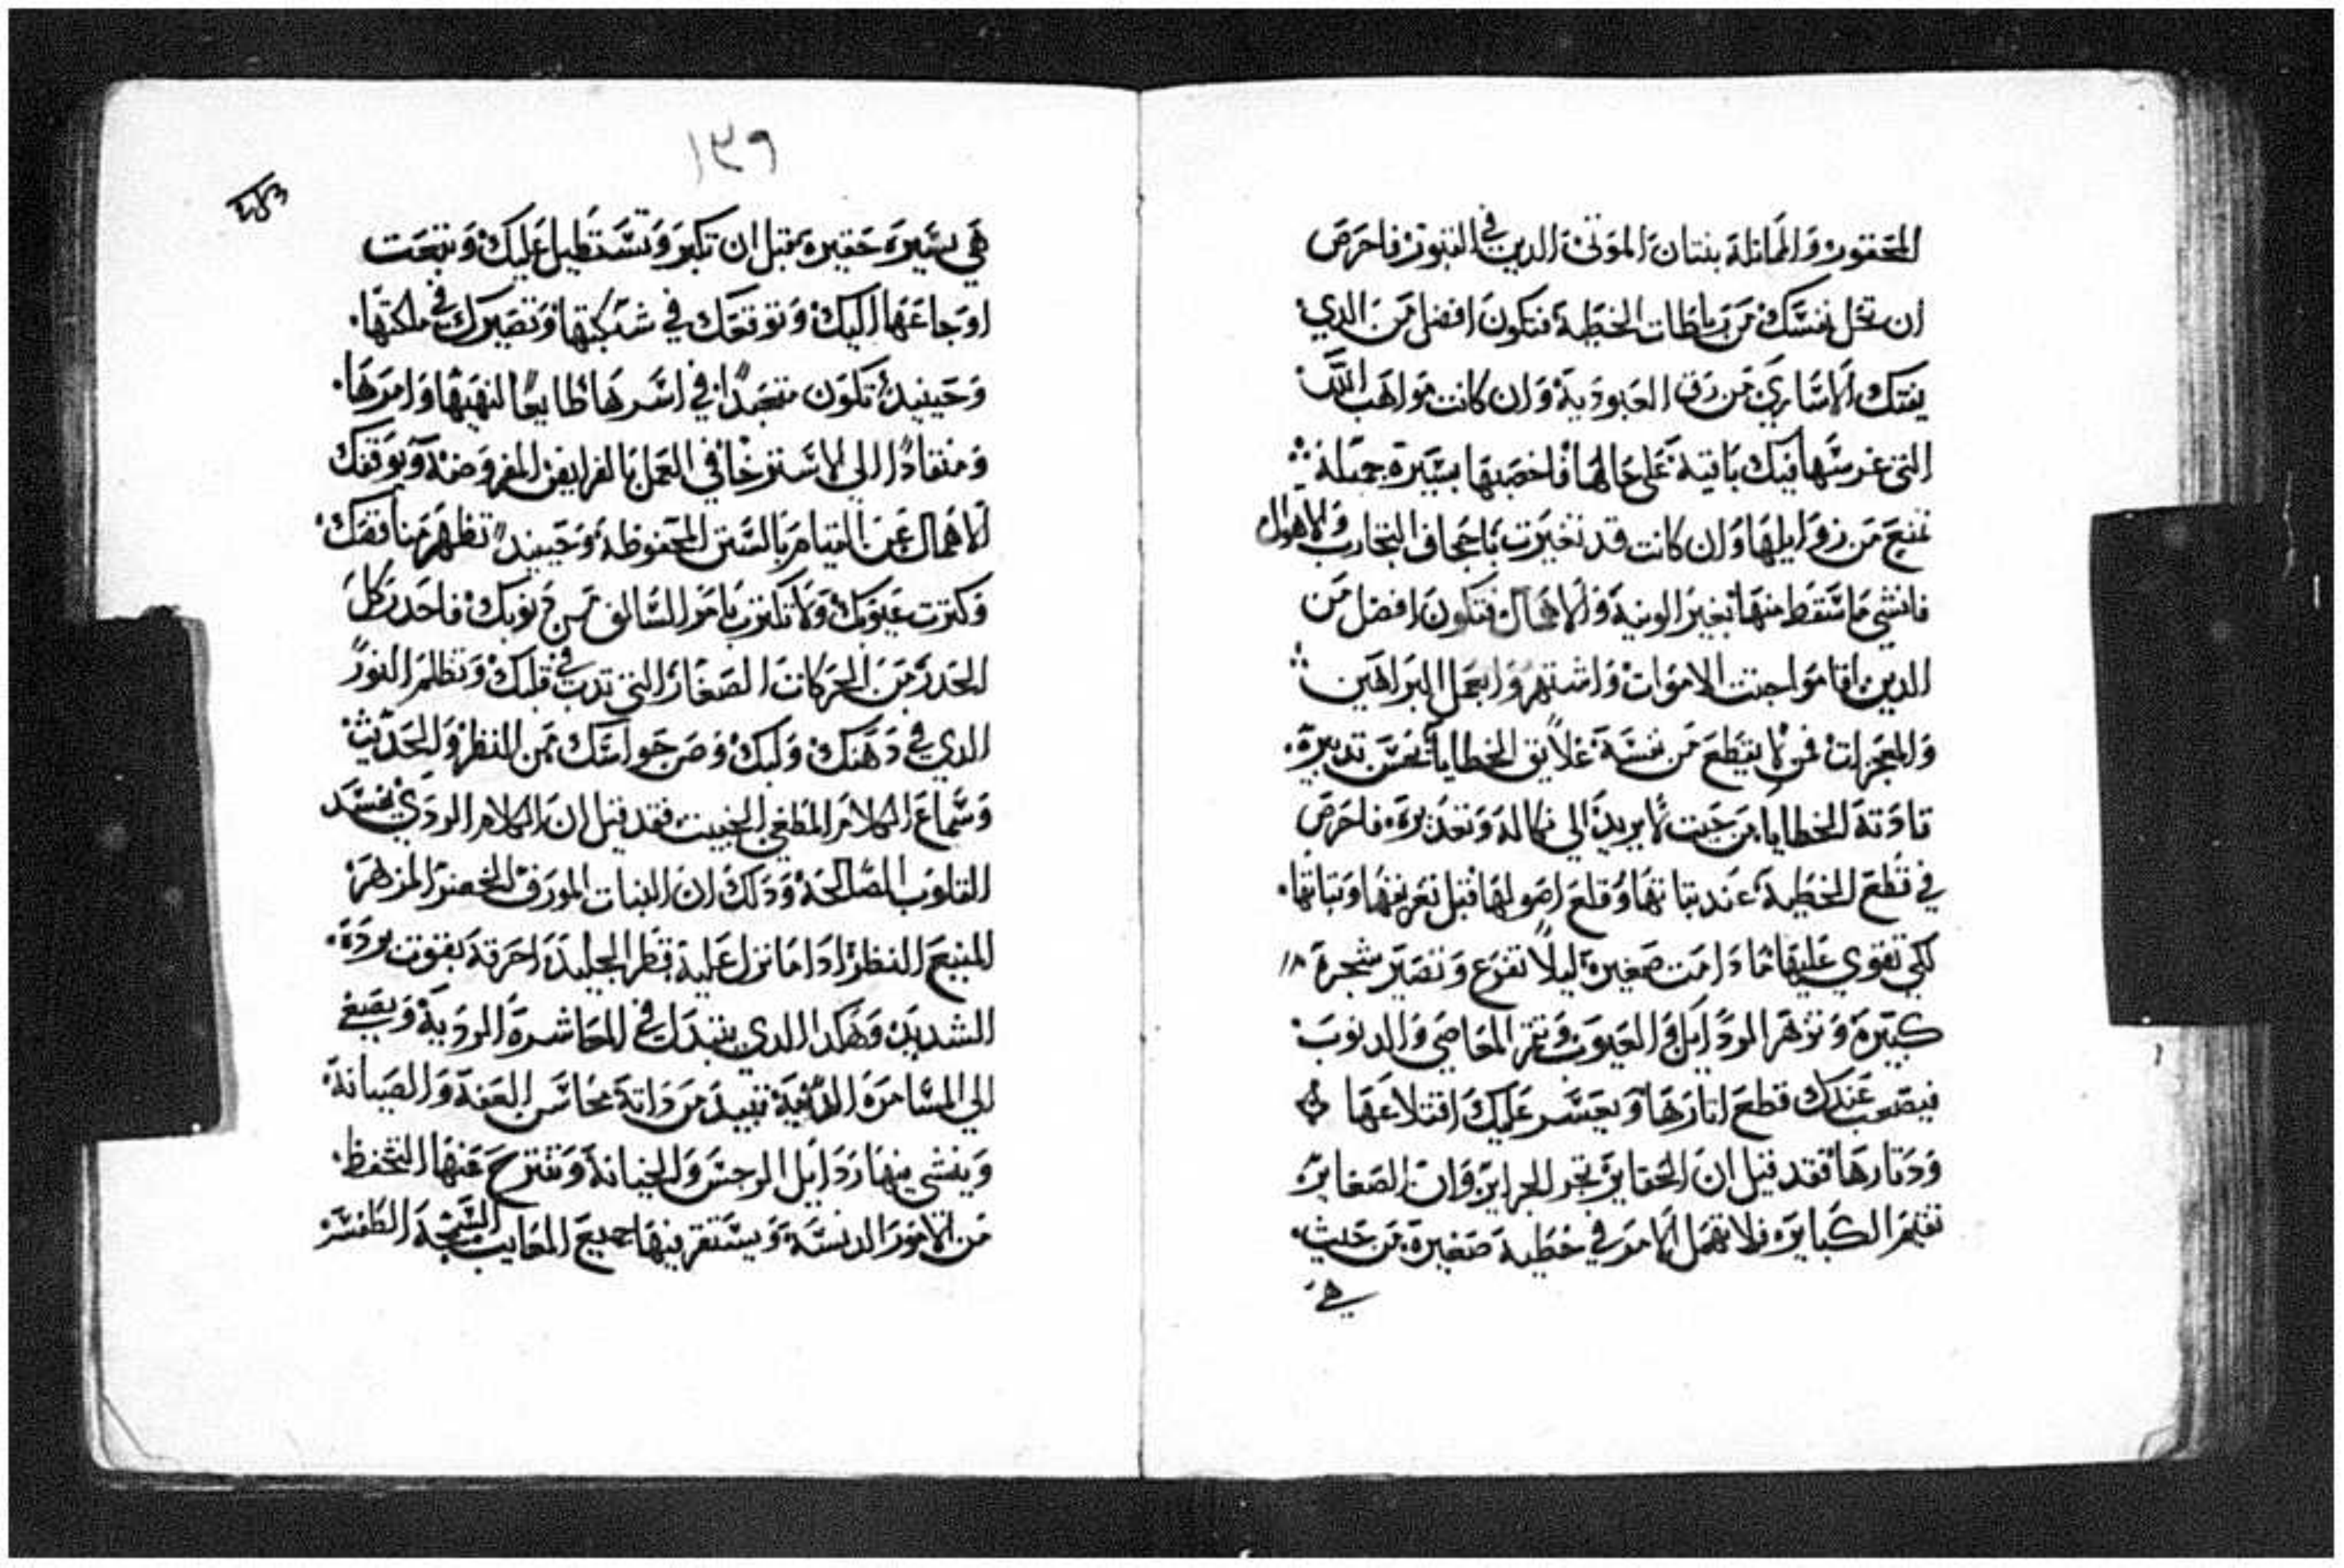 المحقور والماتلة بنتان الموتى الدين في القبور فاحرص
ان تحل نفسك من رباطات الخطية فتكون افضل من الدي
يفتك الاساري من رق العبودية وان كانت مواهب الله
التي غرسها فيك باقية على حالها فاخصبها بسيرة جميلة
تمنع من زوايلها وان كانت قد تغيرت باجحاف التجارب والاهوال
فانشي ما سقط منها بغير الونية والاهمال فتكون افضل من
الدين اقامو اجتت الاموات واشتهرو ابعمل البراهين
والمعجزات فمن لا يقطع من نفسه علايق الخطايا بحسن تدبيره
قادته الخطايا من حيت لا يريد الي نكاله وتعديره فاحرص
في قطع الخطية عند بتاتها وقلع اصولها قبل تعريفها وتباتها
لكي تقوي عليها ما دامت صغيرة ليلا تفرع وتصير شجرة
كبيرة وتزهر الردايل والعيوب وتتمر المعاصي والدنوب
فيصعب عندك قطع اتارها ويعسر عليك اقتلاعها
ودتارها فقد قيل ان الحقاير تجر الجراير وان الصغاير
تقيم الكباير فلا تهمل الامر في خطية صغيرة من حيث
هي
١٣٩
هي يسيرة حقيرة قبل ان تكبر وتستطيل عليك وتبعت
اوجاعها اليك وتوقعك في شبكتها وتصيرك في ملكتها
وحينيد تكون متعبدًا في اسرها طايعًا لنهيها وامرها
ومنقادًا الي الاسترخا في العمل بالفرايض المفروضة ويوقفك
الاهمال عن القيام بالسنن المحفوظة وحينيد تظهر مناقصك
وكترت عيوبك ولا تكترت بامر السالف من دنوبك فاحدر كل
الحدر من الحركات الصغار التي تدب في قلبك وتظلم النور
الدي في دهنك ولبك وصن حواسك من النظر والحديث
وسماع الكلام المطغي الخبيت فقد قيل ان الكلام الردي يفسد
القلوب الصالحة ودلك ان النبات المورق الخضر المزهر
المنيع النظر ادا ما نزل عليه قطر الجليد احرقه بقوت برده
الشديد وهكدا الدي يتبدل في المعاشرة الردية ويصغي
الي المسامرة الدنية تبيد من داته محاسن العفة والصيانة
وينشي منها ردايل الرجس والخيانة وتنتزح عنها التحفظ
من الامور الدنسة ويستقر فيها جميع المعايب السمجة الطفسة